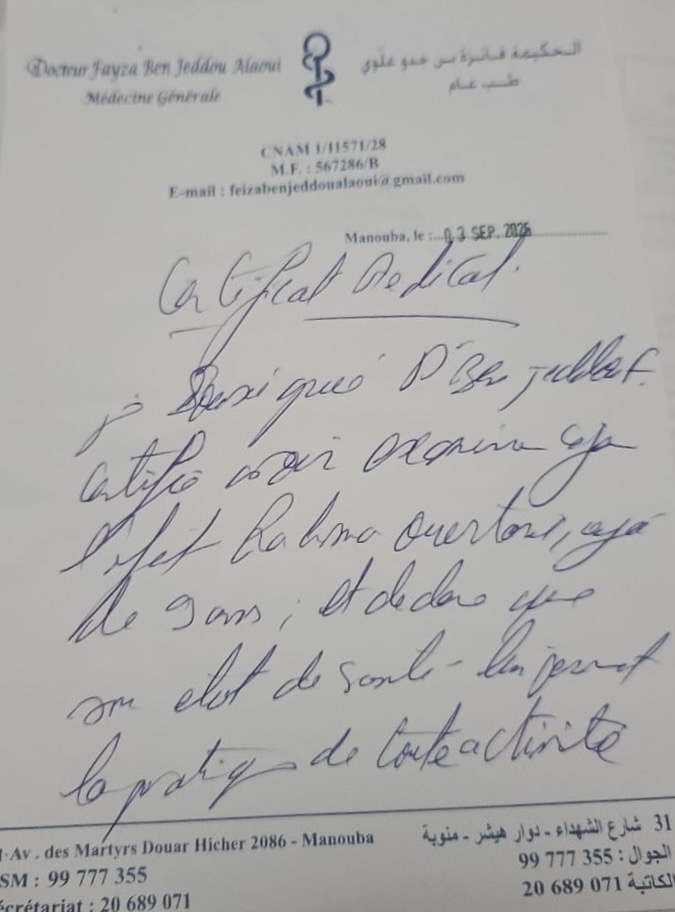 Docteur Fayza Ben Jeddou Alaoui
Médecine Générale
الحكيمة فائزة بن جدو علوي
طب عام
CNAM 1/11571/28
M.F. : 567286/B
E-mail : feizabenjeddoualaoui@gmail.com
Manouba, le : 03 SEP. 2025
Certificat Medical.
je Soussigné Dr Ben Jeddou F.
Certifie avoir examiné
l'enfant Rahma Ouertani, agé
de 9 ans, et declare que
son etat de santé lui permet
la pratique de toute activité
Av. des Martyrs Douar Hicher 2086 - Manouba
SM : 99 777 355
crétariat : 20 689 071
31 شارع الشهداء - دوار هيشر - منوبة
الجوال : 355 777 99
الكاتبة 071 689 20